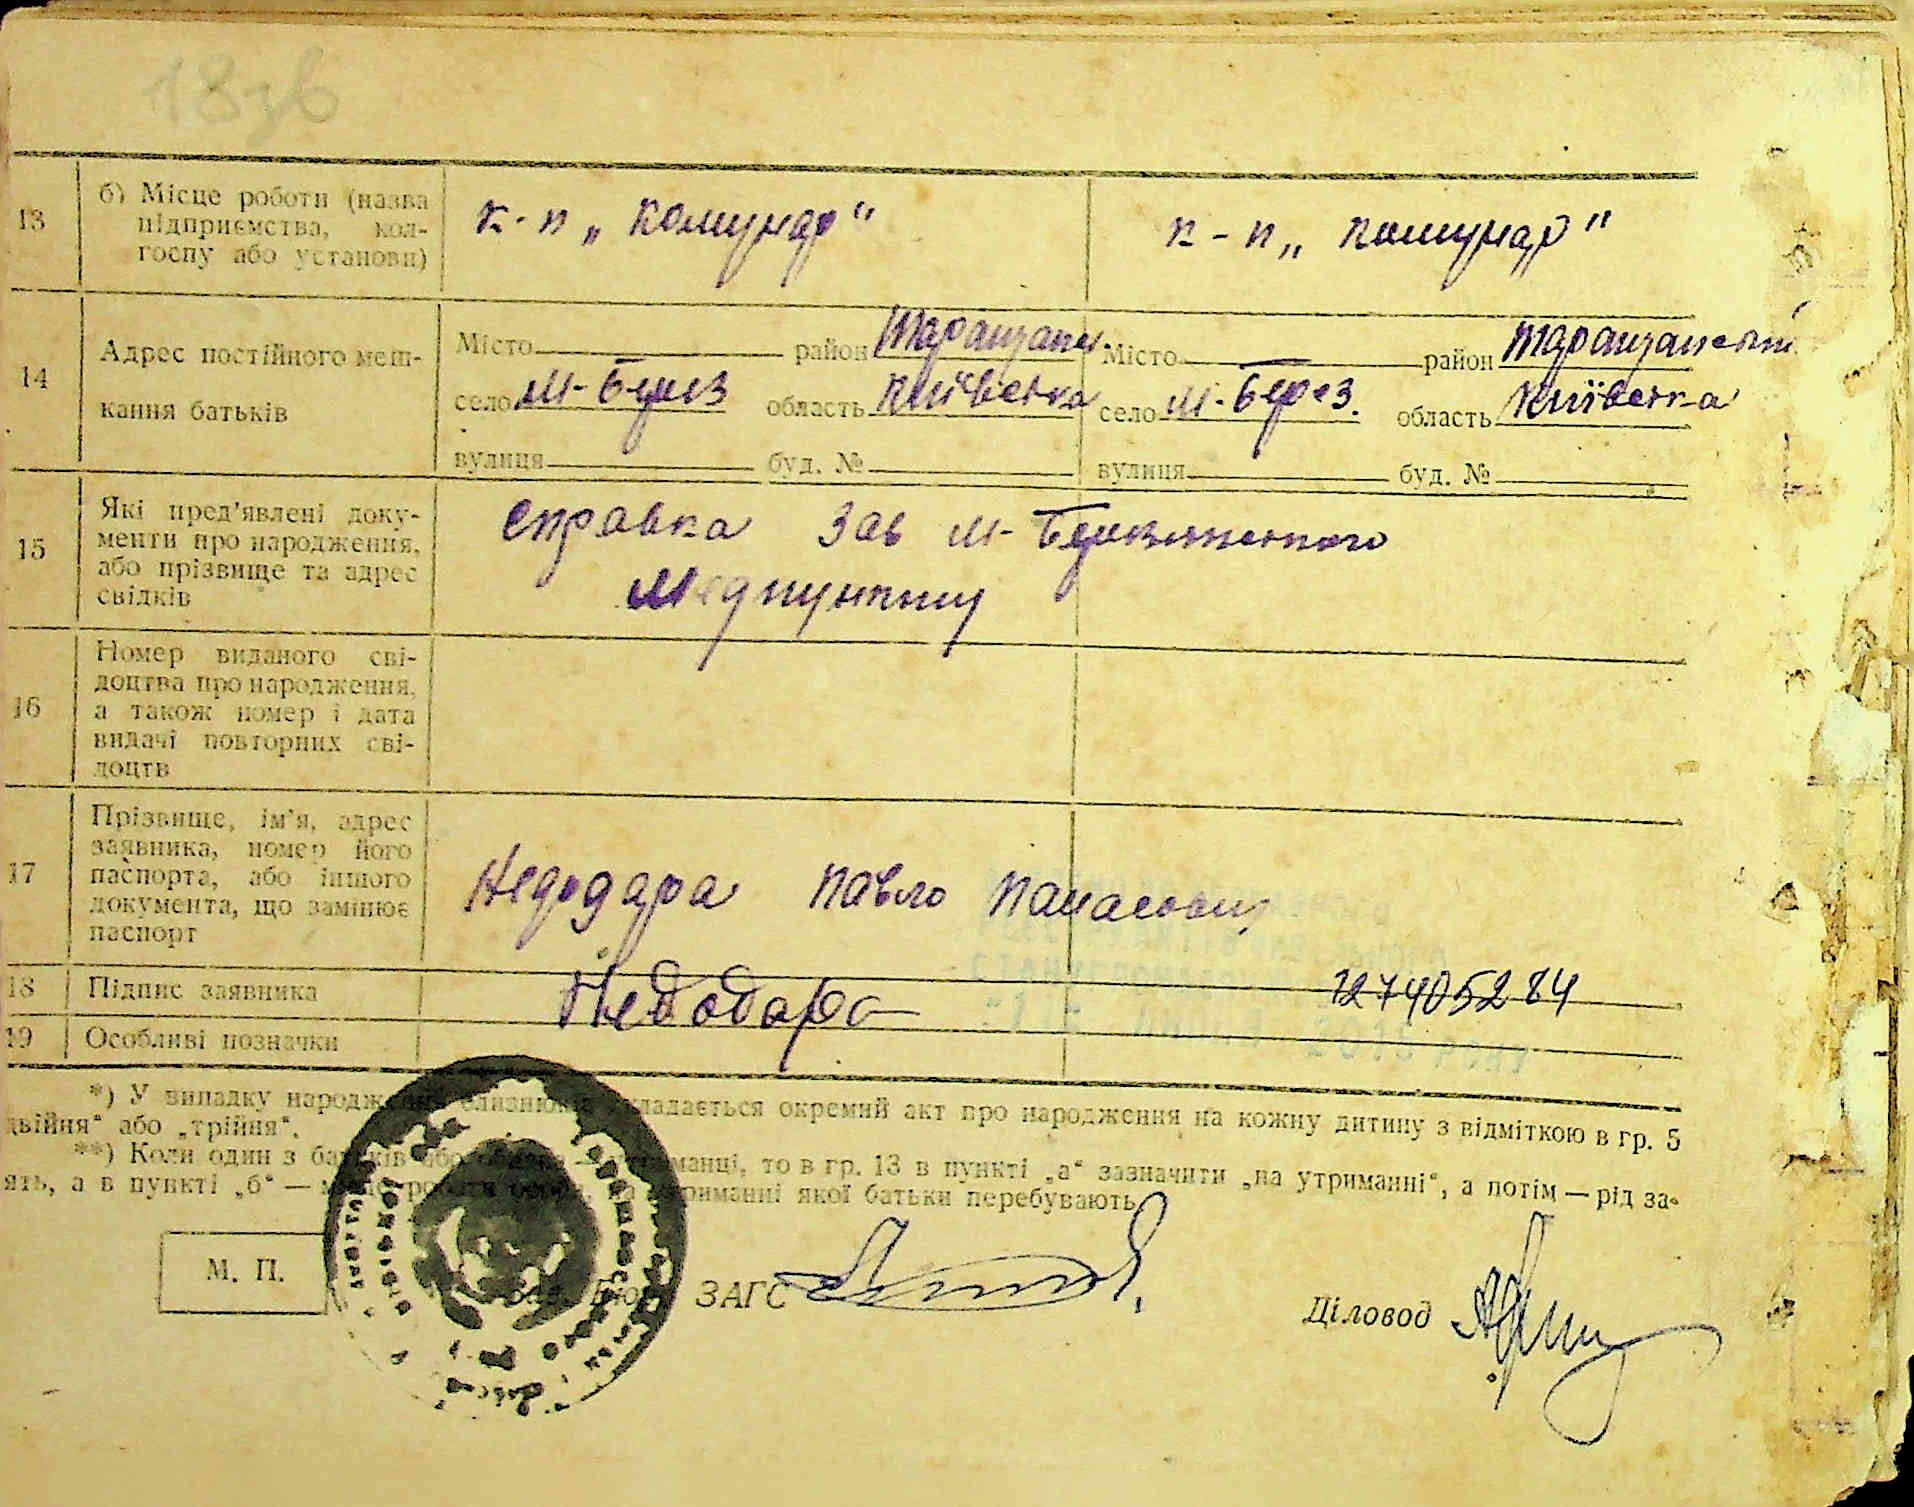 18зв
13
б) Місце роботи (назва
підприємства, кол-
госпу або установи)
к-п „Комунар“
к-п „Комунар“
14
Адрес постійного меш-
кання батьків
Місто район Таращанс.
село М-Берез область Київська
вулиця буд. №
Місто район Таращанський
село М-Берез. область Київська
вулиця буд. №
15
Які пред'явлені доку-
менти про народження,
або прізвище та адрес
свідків
Справка Зав М-Березянського
Медпункту
16
Номер виданого сві-
доцтва про народження,
а також номер і дата
видачі повторних сві-
доцтв
17
Прізвище, ім'я, адрес
заявника, номер його
паспорта, або іншого
документа, що замінює
паспорт
Недодара Павло Панасович
18
Підпис заявника
Недодара
127405284
19
Особливі позначки
*) У випадку народження близнюків складається окремий акт про народження на кожну дитину з відміткою в гр. 5
двійня“ або „трійня“.
**) Коли один з батьків або обидва — утриманці, то в гр. 13 в пункті „а“ зазначити „на утриманні“, а потім — рід за-
ять, а в пункті „б“ — місце роботи особи, на утриманні якої батьки перебувають
М. П.
Зав. Бюро ЗАГС
Діловод